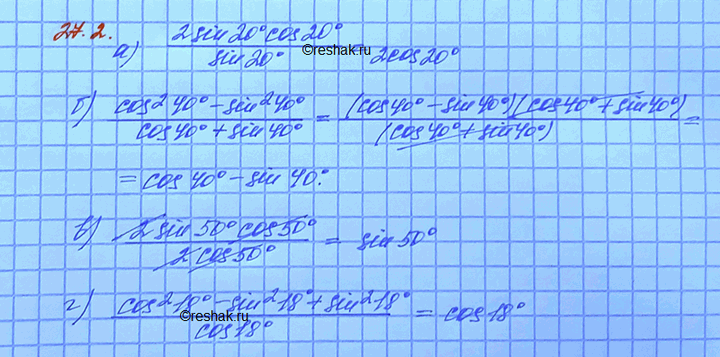 27.2.
а) 2sin20°cos20° / sin20° = 2cos20°
©reshak.ru
б) cos²40°-sin²40° / cos40°+sin40° = (cos40°-sin40°)(cos40°+sin40°) / (cos40°+sin40°) =
= cos40°-sin40°.
в) 2sin50°cos50° / 2cos50° = sin50°
г) cos²18°-sin²18°+sin²18° / cos18° = cos18°
©reshak.ru